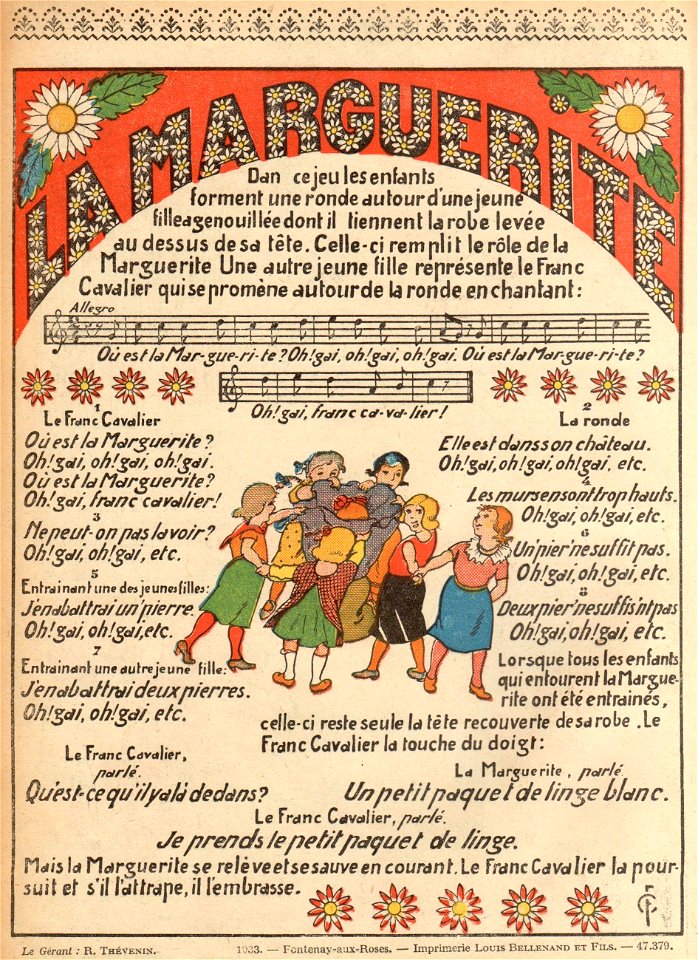 LA MARGUERITE
Dan ce jeu les enfants
forment une ronde autour d'une jeune
fille agenouillée dont il tiennent la robe levée
au dessus de sa tête. Celle-ci remplit le rôle de la
Marguerite Une autre jeune fille représente le Franc
Cavalier qui se promène autour de la ronde en chantant :
Allegro
Où est la Mar-gue-ri-te? Oh! gai, oh! gai, oh! gai. Où est la Mar-gue-ri-te?
Oh! gai, franc ca-va-lier!
1
Le Franc Cavalier
Où est la Marguerite?
Oh! gai, oh! gai, oh! gai.
Où est la Marguerite?
Oh! gai, franc cavalier!
2
La ronde
Elle est dans son château.
Oh! gai, oh! gai, oh! gai, etc.
3
Ne peut-on pas la voir?
Oh! gai, oh! gai, etc.
4
Les murs en sont trop hauts.
Oh! gai, oh! gai, etc.
5
Entraînant une des jeunes filles:
J'en abattrai un' pierre.
Oh! gai, oh! gai, etc.
6
Un' pier' ne suffit pas.
Oh! gai, oh! gai, etc.
7
Entraînant une autre jeune fille:
J'en abattrai deux pierres.
Oh! gai, oh! gai, etc.
8
Deux pier' ne suffis'nt pas
Oh! gai, oh! gai, etc.
Lorsque tous les enfants
qui entourent la Margue-
rite ont été entrainés,
celle-ci reste seule la tête recouverte de sa robe. Le
Franc Cavalier la touche du doigt:
Le Franc Cavalier,
parlé.
Qu'est-ce qu'il y a là dedans?
La Marguerite, parlé
Un petit paquet de linge blanc.
Le Franc Cavalier, parlé.
Je prends le petit paquet de linge.
Mais la Marguerite se relève et se sauve en courant. Le Franc Cavalier la pour-
suit et s'il l'attrape, il l'embrasse.
Le Gérant : R. THÉVENIN. 1933. — Fontenay-aux-Roses. — Imprimerie LOUIS BELLENAND ET FILS. — 47.379.